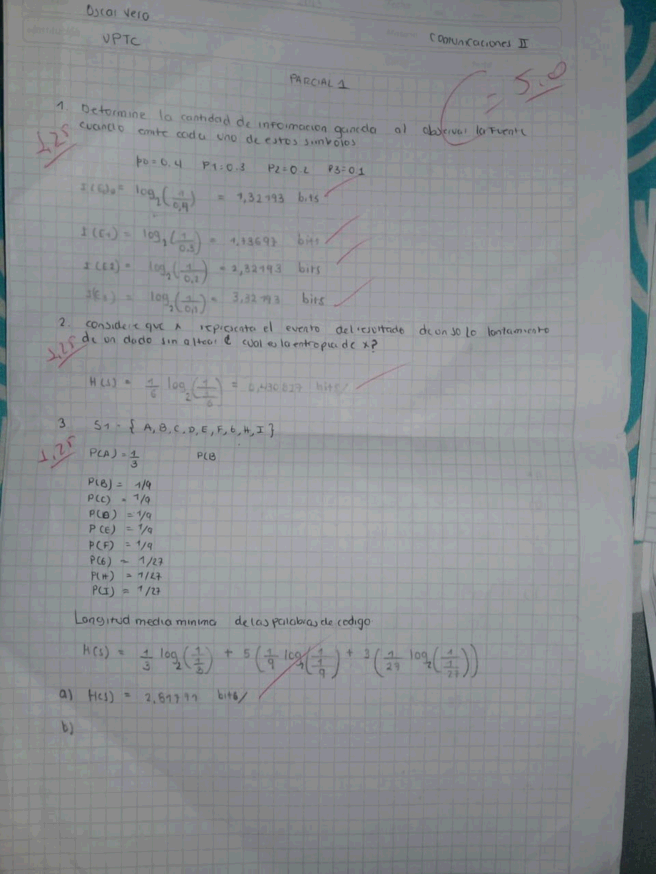 Oscar Vero
UPTC
Comunicaciones II
PARCIAL 1
= 5.0
1. Determine la cantidad de informacion ganada al observar la fuente
1,25
cuando emite cada uno de estos simbolos
p0=0.4 P1=0.3 P2=0.2 P3=0.1
log2(1/0,4) = 1,32193 bits
I(S1) = log2(1/0,3) = 1,73697 bits
I(S2) = log2(1/0,2) = 2,32193 bits
log2(1/0,1) = 3,32193 bits
2. considere que x representa el evento del resultado de un solo lanzamiento
1,25
de un dado sin alterar ¿ cual es la entropia de x?
H(s) = 1/6 log2(1/(1/6)) = 0,430827 bits
3. S1 = { A, B, C, D, E, F, G, H, I }
1,25
P(A) = 1/3 P(B
P(B) = 1/9
P(C) = 1/9
P(D) = 1/9
P(E) = 1/9
P(F) = 1/9
P(G) = 1/27
P(H) = 1/27
P(I) = 1/27
Longitud media minima de las palabras de codigo
H(s) = 1/3 log2(1/(1/3)) + 5(1/9 log2(1/(1/9)) + 3(1/27 log2(1/(1/27)))
a) H(s) = bits
b)